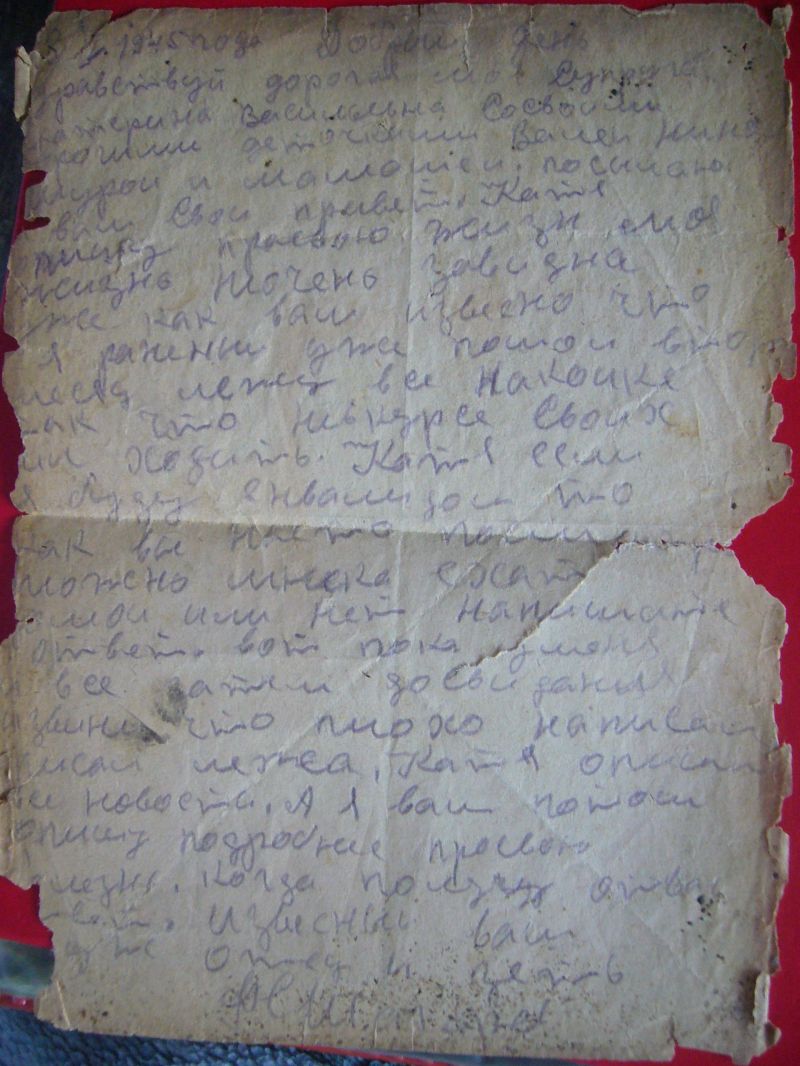 1945 года Добрый день
дравствуй дорогая моя Супруга
катерина Васильвна Сосвоими
рогими деточками Валей Нина
шурой и мамашей. посылаю
вам Свой привет. Катя
опишу просвою жизн. моя
жизнь ниочень завидна
уже как вам извесно что
я раненый уже пошол втор
месяц лежу все накойке
так что невкурсе Своих
ходить. Катя если
я буду Енвалидом то
как вы
можено мнека ехат
омои или нет напишите
ответ. вот пока уменя
и все затем досвидания
извини что плохо написал
писал лежа. Катя опиши
все новости. А я вам потом
опишу подробние просвою
олезнь. Когда получу отвас
твет. Извесный вам
уже отец и зеть